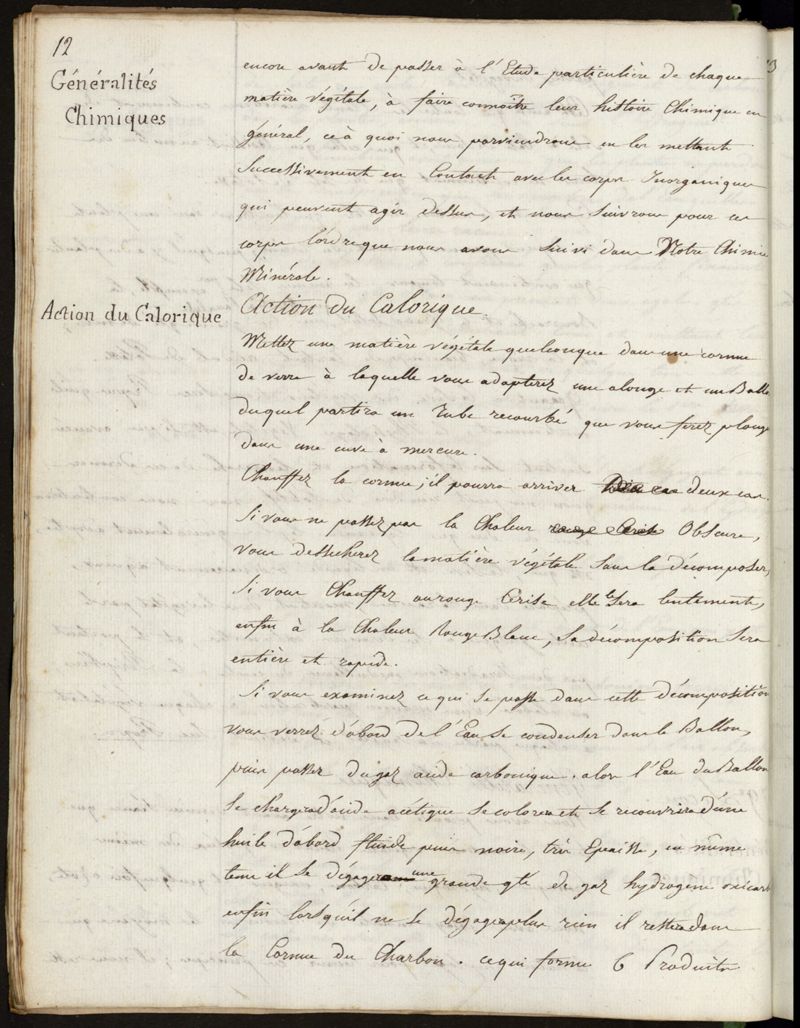 12
Généralités
Chimiques
encore avant de passer à l'Etude particulière de chaque
matière végétale, à faire connoître leur histoire Chimique en
général, ce à quoi nous parviendrons en les mettant
Successivement en Contact avec les corps Inorganiques
qui peuvent agir dessus, et nous Suivrons pour ces
corps l'ordre que nous avons Suivi dans Notre Chimie
Minérale.
Action du Calorique
Action du Calorique.
Mettez une matière végétale quelconque dans une cornue
de verre à laquelle vous adapterez une alonge et un Ballon
duquel partira un Tube recourbé que vous ferez plonger
dans une cuve à mercure.
Chauffez la cornue; il pourra arriver deux cas.
Si vous ne passez pas la Chaleur rouge Cerise Obscure,
vous dessecherez la matière végétale Sans la décomposer,
Si vous Chauffez au rouge Cerise elle le Sera lentement,
enfin à la Chaleur Rouge Blanc, Sa décomposition Sera
entière et rapide.
Si vous examinez ce qui Se passe dans cette décomposition
vous verrez d'abord de l'Eau Se condenser dans le Ballon,
puis passer du gaz acide carbonique. alors l'Eau du Ballon
Se chargera d'acide acétique Se colorera et Se recouvrira d'une
huile d'abord fluide puis noire, très Epaisse, en même
tems il Se dégagera une grande qté de gaz hydrogene oxicarb
enfin lorsqu'il ne Se dégagera plus rien il restera dans
la Cornue du Charbon. ce qui forme 6 Produits